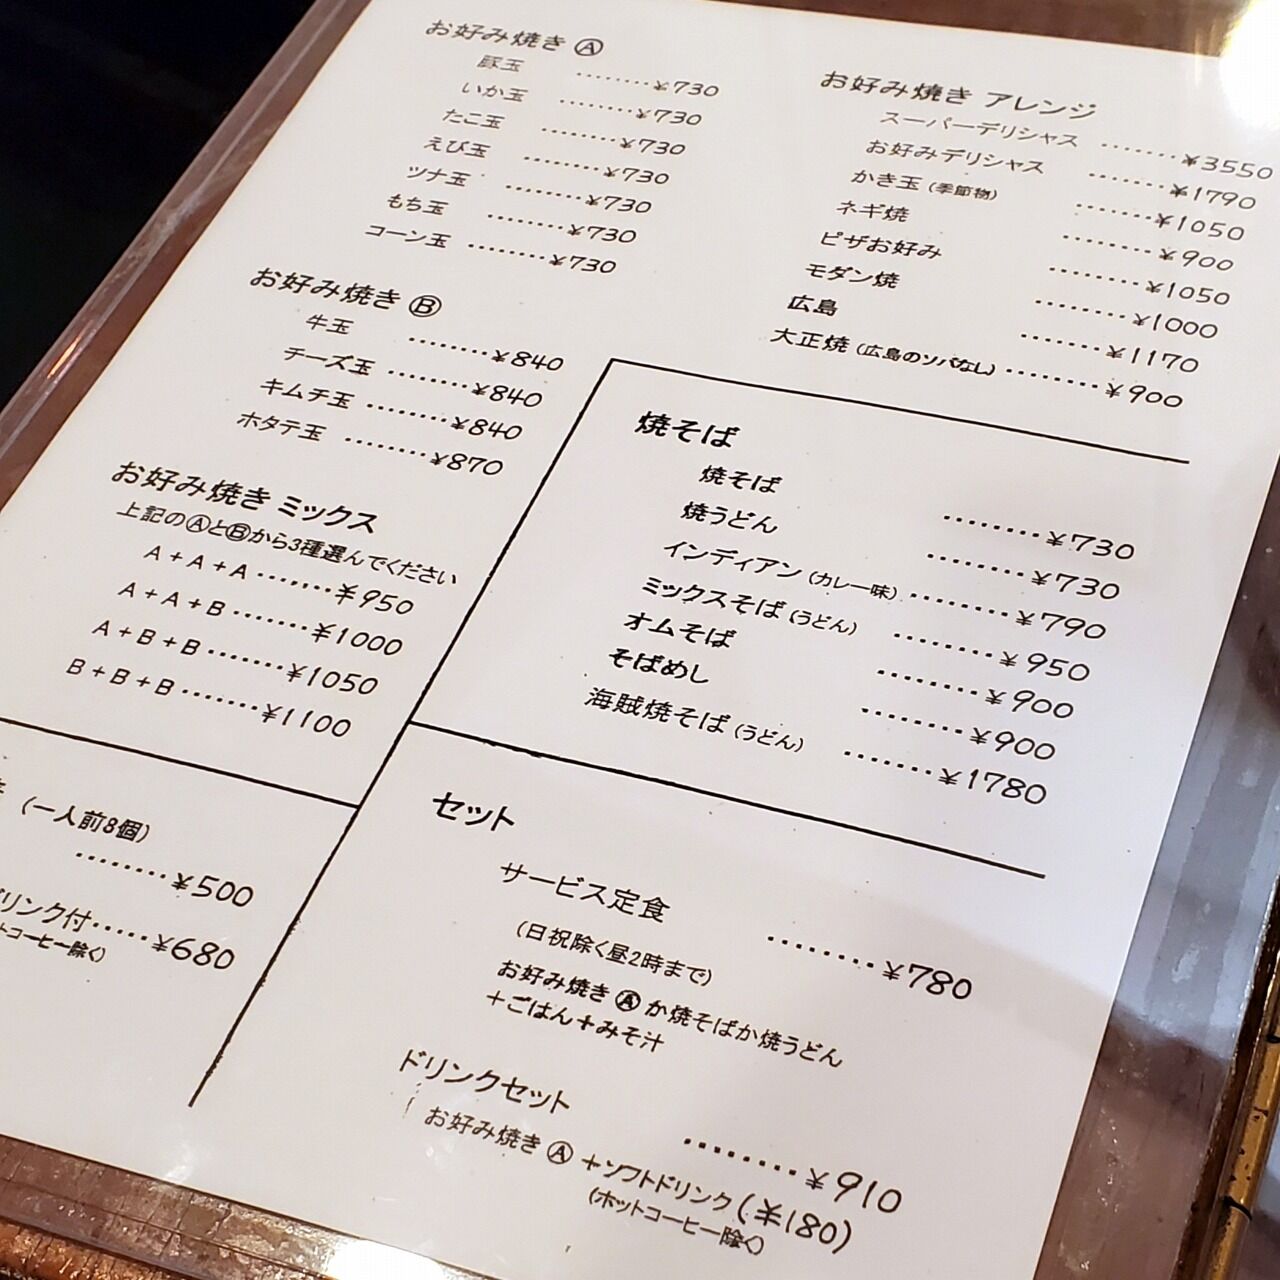 お好み焼き Ⓐ
豚玉 ………¥730
いか玉 ………¥730
たこ玉 ………¥730
えび玉 ………¥730
ツナ玉 ………¥730
もち玉 ………¥730
コーン玉 ………¥730
お好み焼き Ⓑ
牛玉 ………¥840
チーズ玉 ………¥840
キムチ玉 ………¥840
ホタテ玉 ………¥870
お好み焼き ミックス
上記のⒶとⒷから3種選んでください
A+A+A………¥950
A+A+B………¥1000
A+B+B………¥1050
B+B+B………¥1100
お好み焼き アレンジ
スーパーデリシャス ………¥3550
お好みデリシャス ………¥1790
かき玉(季節物) ………¥1050
ネギ焼 ………¥900
ピザお好み ………¥1050
モダン焼 ………¥1000
広島 ………¥1170
大正焼(広島のソバなし) ………¥900
焼そば
焼そば ………¥730
焼うどん ………¥730
インディアン(カレー味) ………¥790
ミックスそば(うどん) ………¥950
オムそば ………¥900
そばめし ………¥900
海賊焼そば(うどん) ………¥1780
(一人前8個)
………¥500
リンク付……¥680
ットコーヒー除く)
セット
サービス定食 ………¥780
(日祝除く昼2時まで)
お好み焼き Ⓐ か焼そばか焼うどん
+ごはん+みそ汁
ドリンクセット ………¥910
お好み焼き Ⓐ +ソフトドリンク(¥180)
(ホットコーヒー除く)